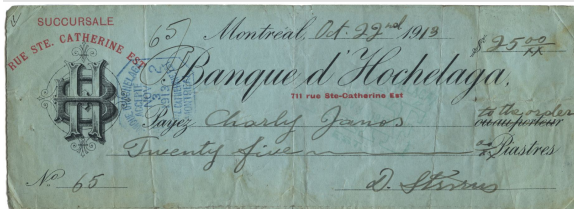 SUCCURSALE
RUE STE. CATHERINE EST
65
Montréal, Oct. 22nd 1913
$25 00/xx
Banque d'Hochelaga,
711 rue Ste-Catherine Est
Payez Charly Janos to the order
ou au porteur
Twenty five 00/xx Piastres
No 65